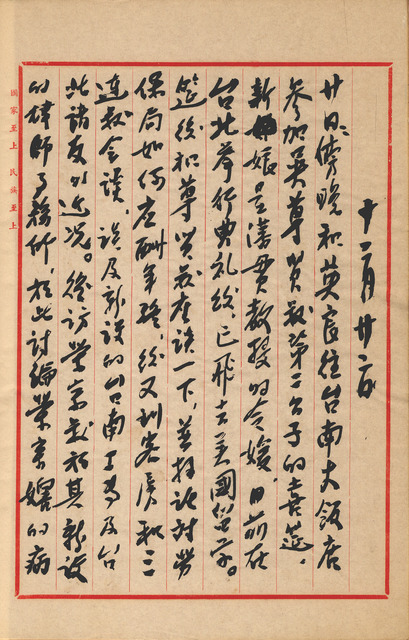 十二月廿二日
廿日，傍晚和英良往台南大飯店
參加吳尊賢叔第二公子的喜筵，
新娘是潘貫教授的令媛，日前在
台北舉行典禮後，已飛去美國留学。
筵後和尊賢叔座談一下，並接談討勞
保局如何应酬年終，後又到客房和三
連叔会談，談及新設的台南工專及台
北諸友的近況。後訪榮宗君於其新設
的律師事務所，於此討論榮宗嬸的病
國家至上 民族至上